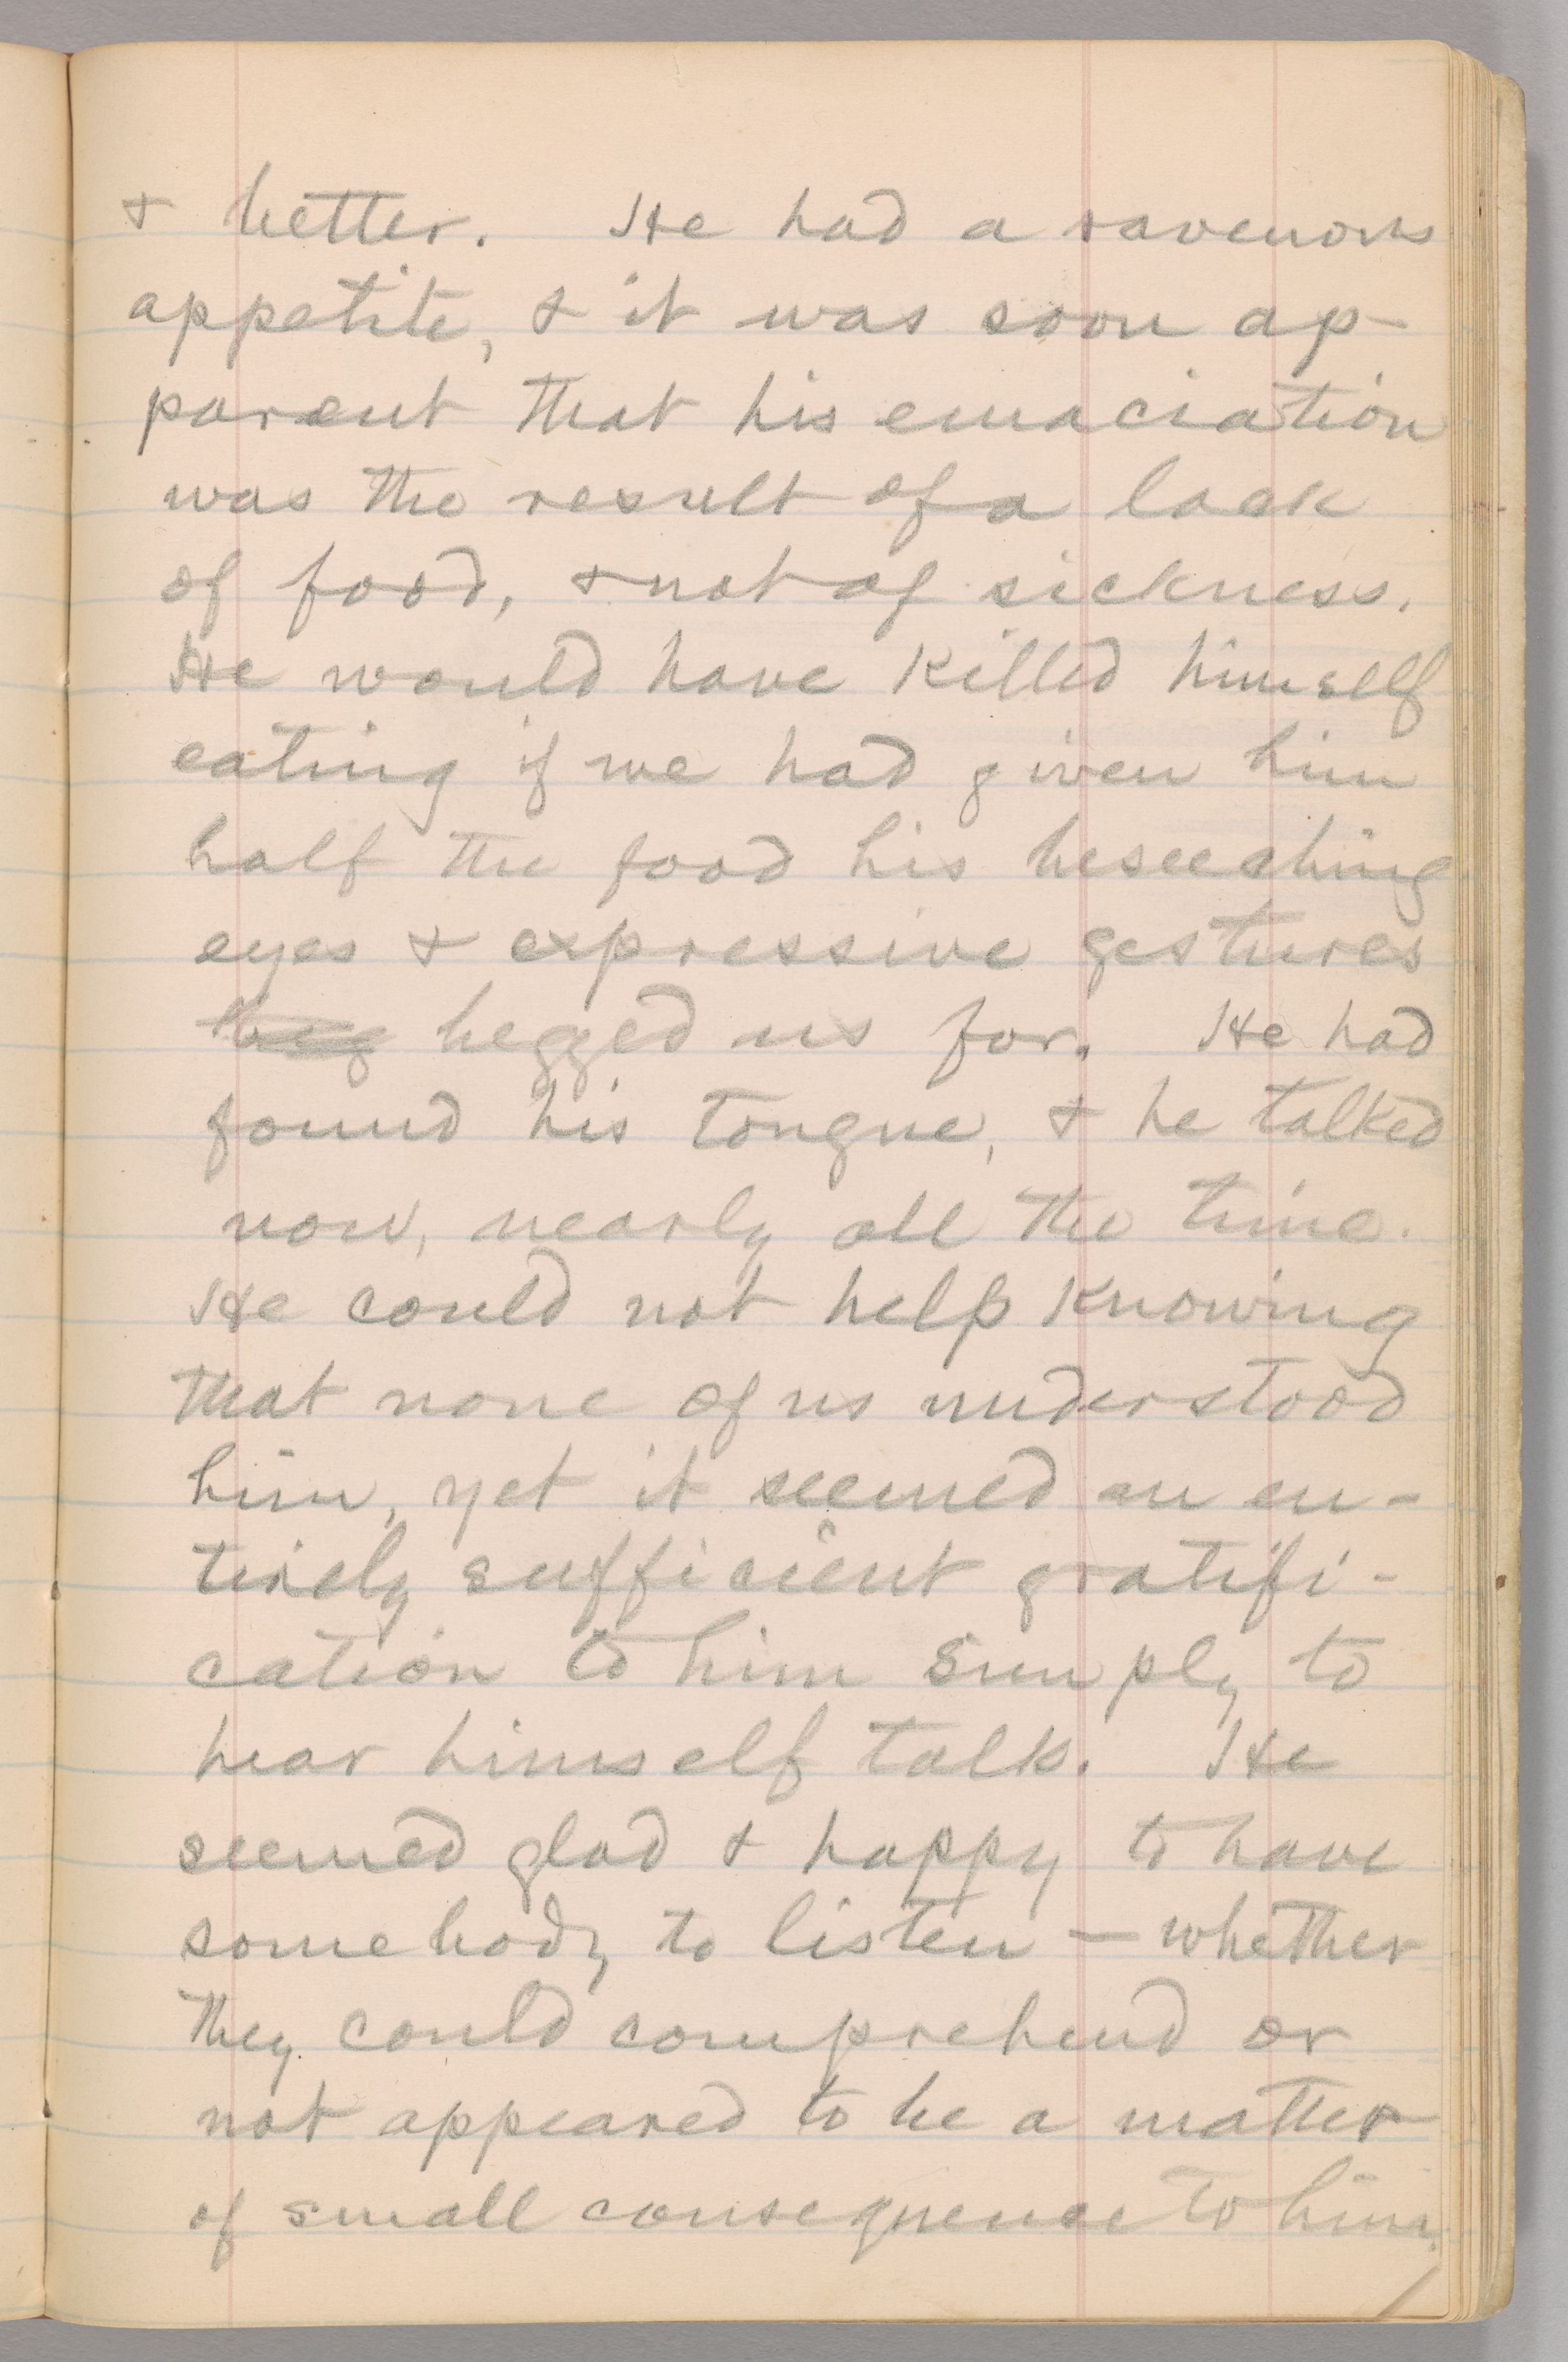 & better. He had a ravenous
appetite, & it was soon ap-
parent that his emaciation
was the result of a lack
of food, & not of sickness.
He would have killed himself
eating if we had given him
half the food his beseeching
eyes & expressive gestures
begged us for. He had
found his tongue, & he talked
now, nearly all the time.
He could not help knowing
that none of us understood
him, yet it seemed an en-
tirely sufficient gratifi-
cation to him simply to
hear himself talk. He
seemed glad & happy to have
somebody to listen — whether
they could comprehend or
not appeared to be a matter
of small consequence to him.